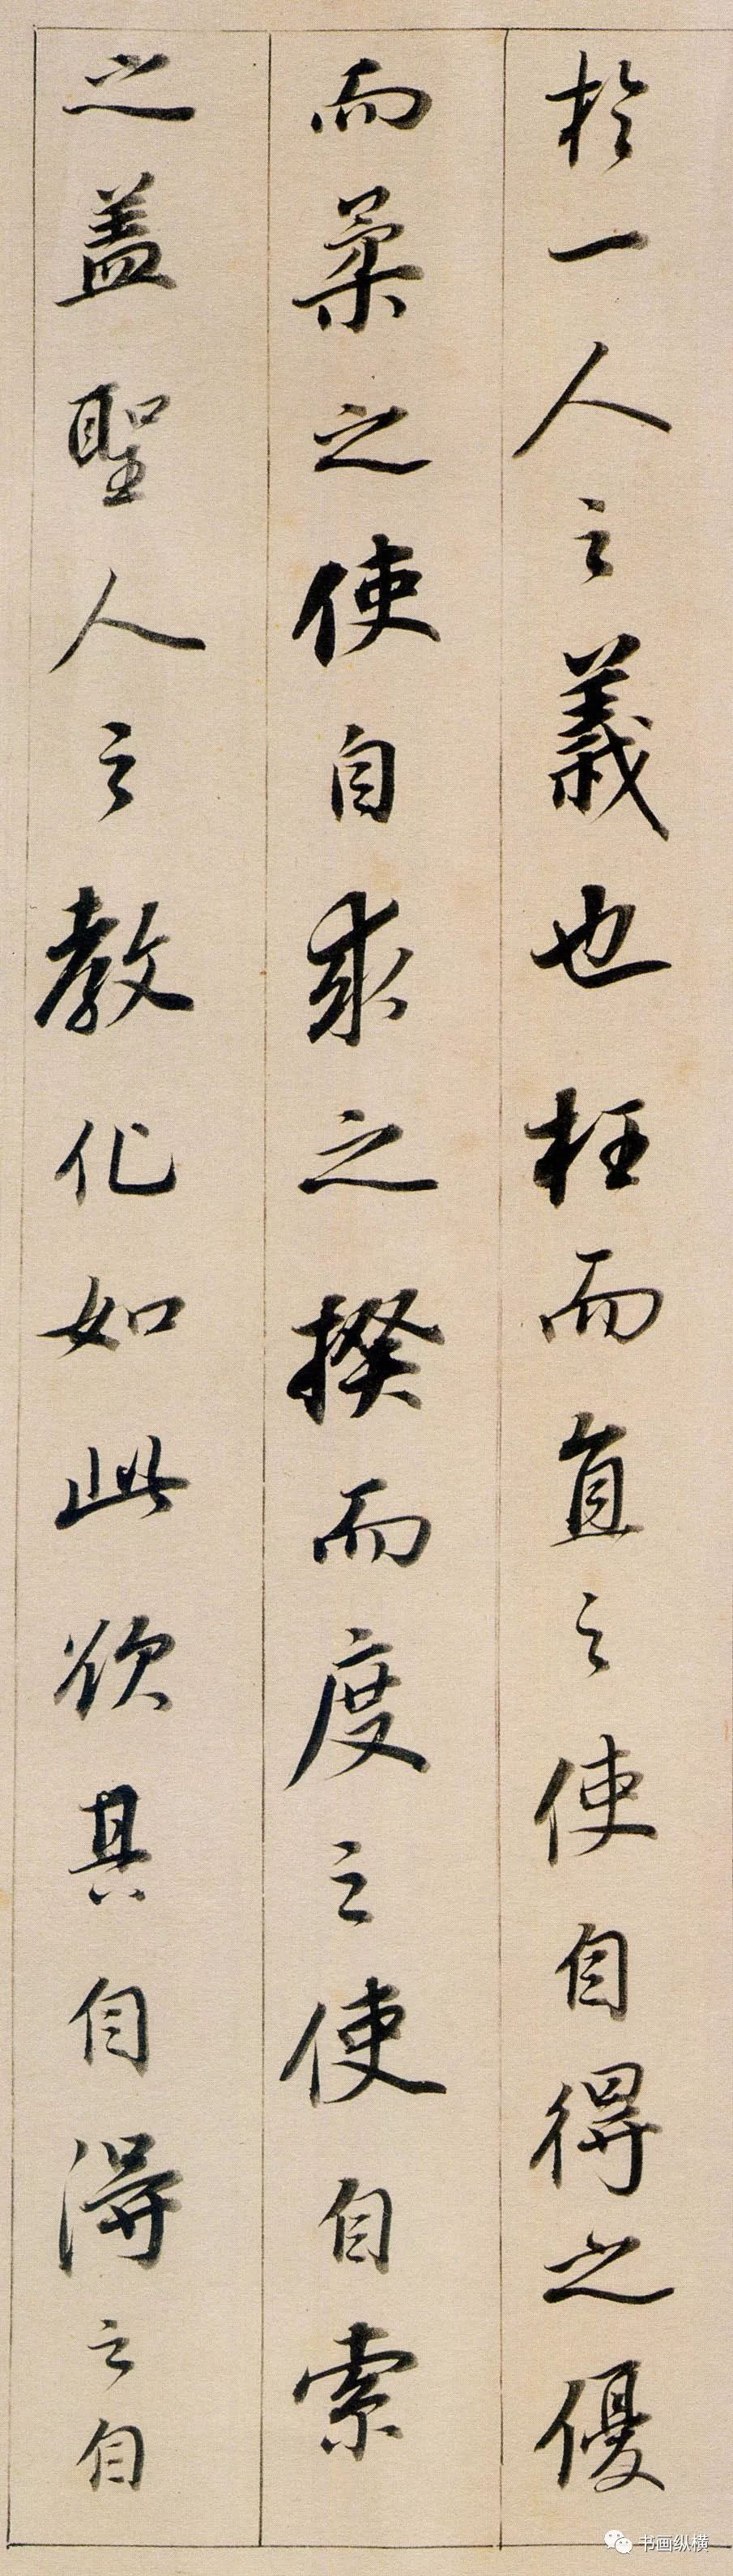 於一人之義也枉而直之使自得之優
而柔之使自求之揆而度之使自索
之盖聖人之教化如此欲其自得之自
书画纵横